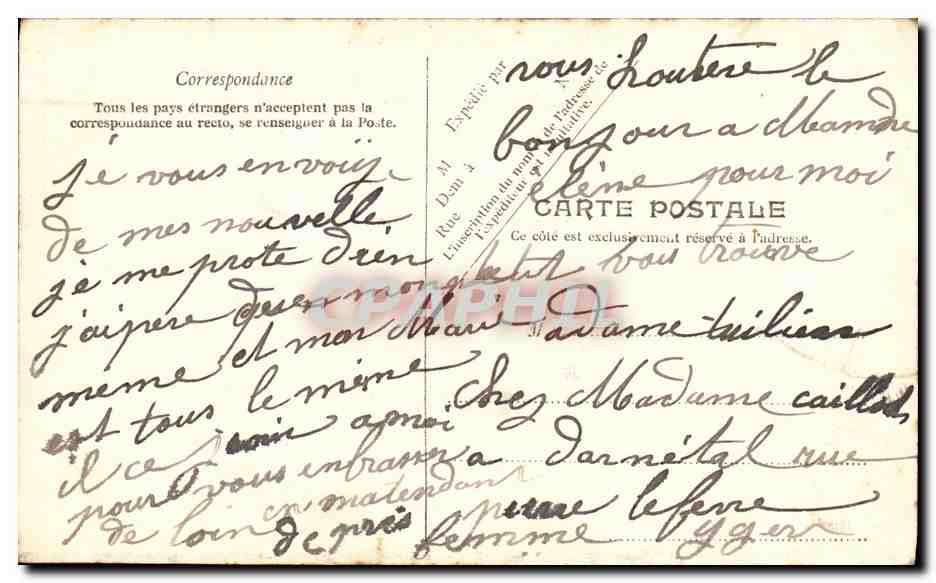 Correspondance
Tous les pays étrangers n'acceptent pas la
correspondance au recto, se renseigner à la Poste.
jé vous envoÿe
de mes nouvelle
je me prote d'rén
j'aipère quen mongtent vous trouve
meme et mon Marie
est tous le mème
il ce amoi
pour vous enbrasser
de loin en matendant
de près
Expédié par M
Demt à
Rue N
L'inscription du nom et de l'adresse de
l'expéditeur est facultative.
vous souterè le
bonjour a Mamdme
élène pour moi
CARTE POSTALE
Ce côté est exclusivement réservé à l'adresse.
CPAPHIL
Madame tuilier
chez Madame
a darnétal rue
pierre lefevre
femme yger